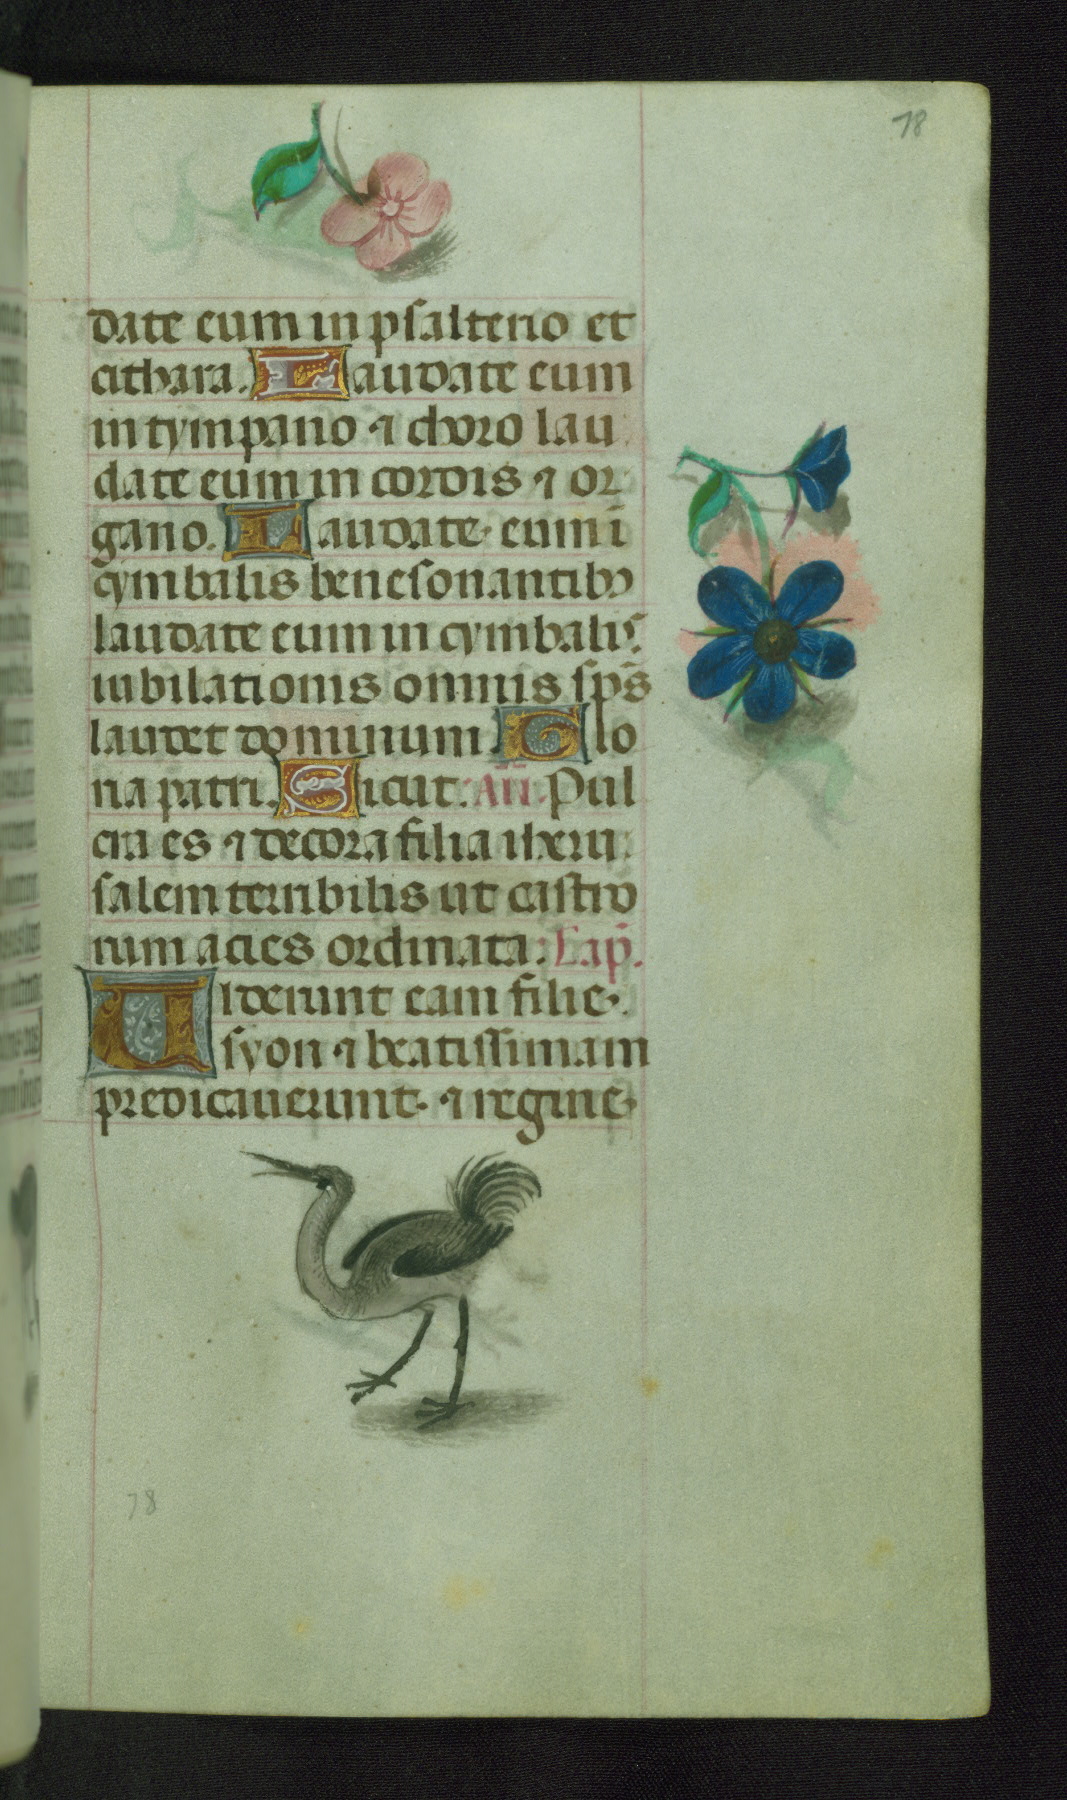 78
date eum in psalterio et
cithara. Laudate eum
in tympano ⁊ choro lau
date eum in cordis ⁊ or
gano. Laudate eum ī
cymbalis benesonantibꝰ
laudate eum in cymbalis
iubilationis omnis sp̄s
laudet dominum Glo
ria patri. Sicut. Añ. Pul
cra es ⁊ decora filia iheru
salem terribilis ut castro
rum acies ordinata: Cap̄.
Uiderunt eam filie
syon ⁊ beatissimam
predicauerunt ⁊ regine
78